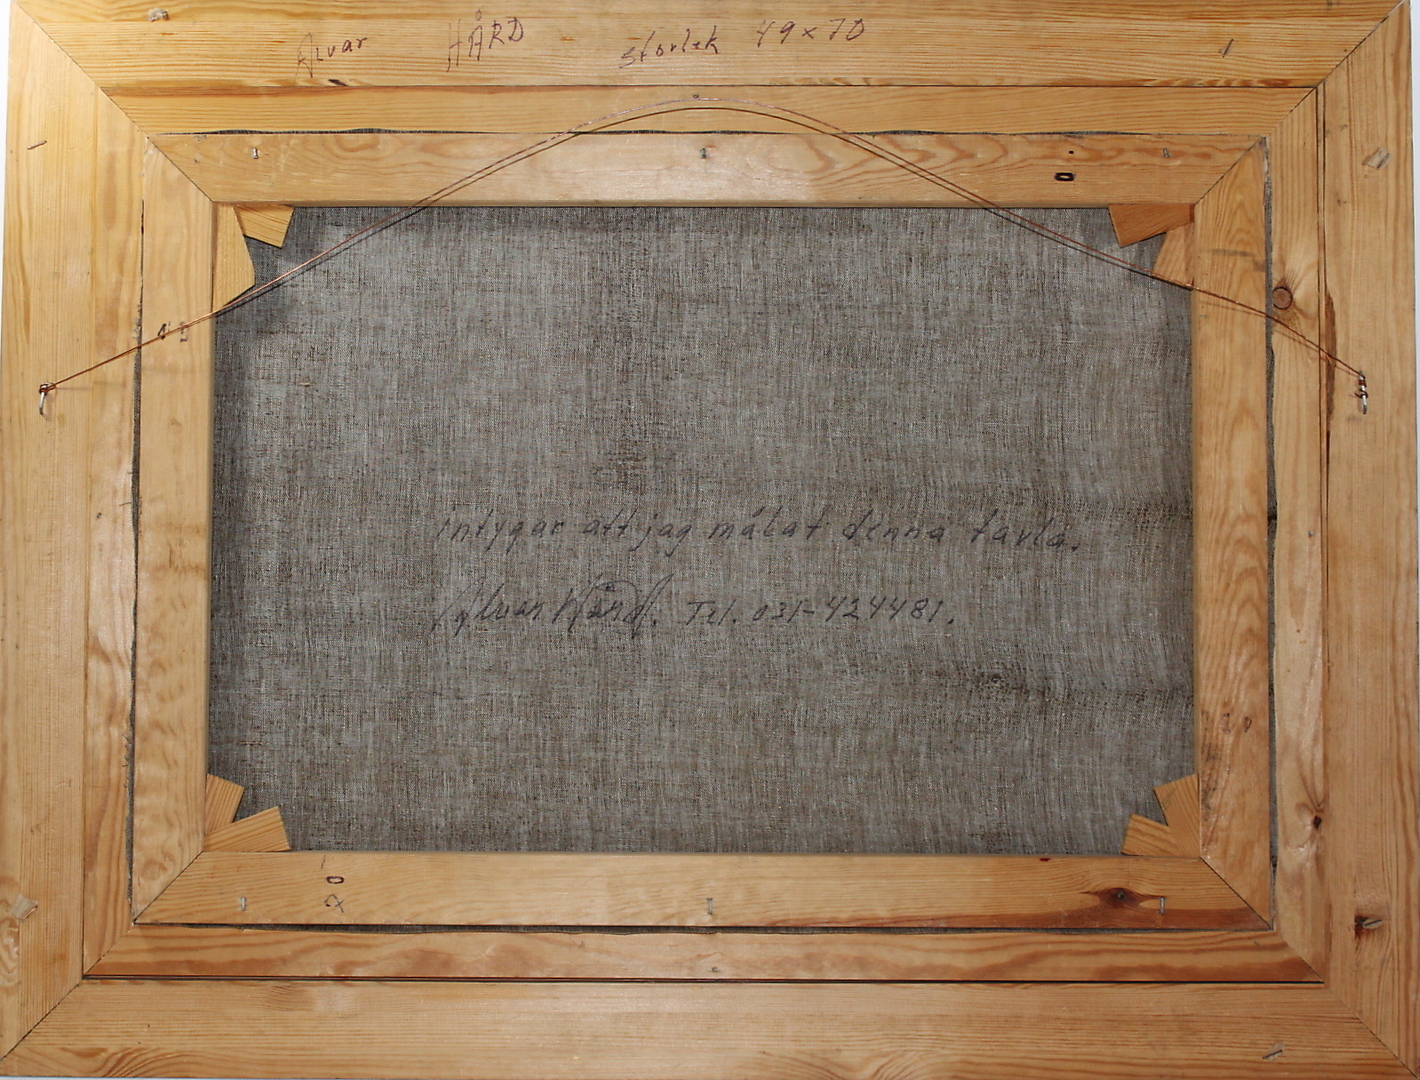 Alvar HÅRD storlek 49x70
intygar att jag målat denna tavla.
Alvar Hård. Tel. 031-424481.
70